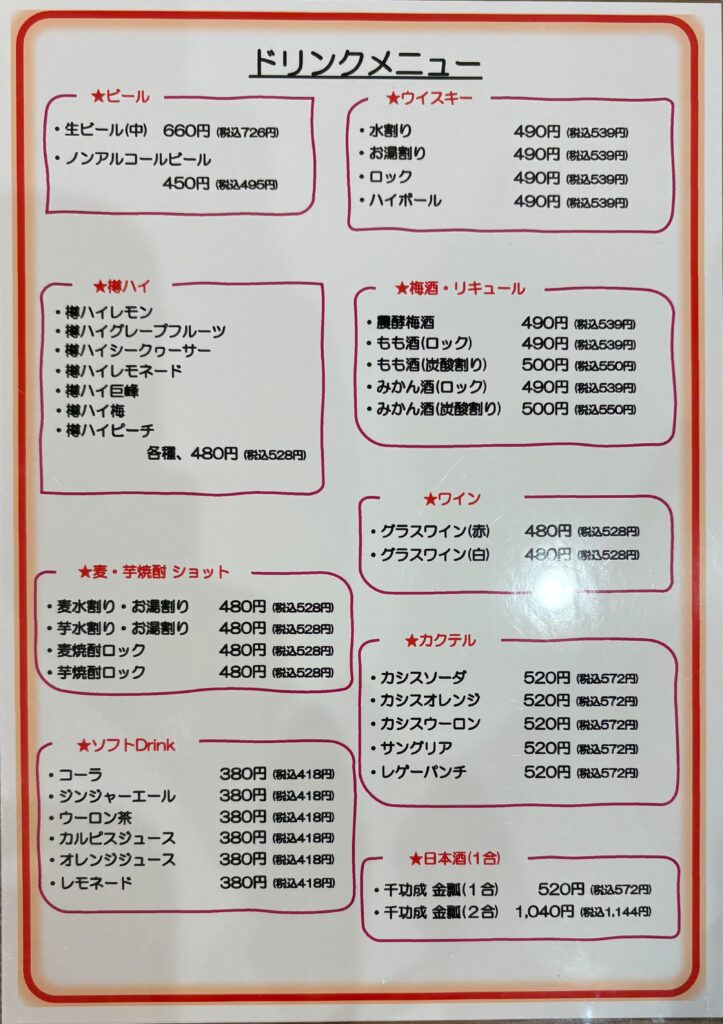 ドリンクメニュー
★ビール
・生ビール(中) 660円 (税込726円)
・ノンアルコールビール
450円 (税込495円)
★樽ハイ
・樽ハイレモン
・樽ハイグレープフルーツ
・樽ハイシークヮーサー
・樽ハイレモネード
・樽ハイ巨峰
・樽ハイ梅
・樽ハイピーチ
各種、480円 (税込528円)
★麦・芋焼酎 ショット
・麦水割り・お湯割り 480円 (税込528円)
・芋水割り・お湯割り 480円 (税込528円)
・麦焼酎ロック 480円 (税込528円)
・芋焼酎ロック 480円 (税込528円)
★ソフトDrink
・コーラ 380円 (税込418円)
・ジンジャーエール 380円 (税込418円)
・ウーロン茶 380円 (税込418円)
・カルピスジュース 380円 (税込418円)
・オレンジジュース 380円 (税込418円)
・レモネード 380円 (税込418円)
★ウイスキー
・水割り 490円 (税込539円)
・お湯割り 490円 (税込539円)
・ロック 490円 (税込539円)
・ハイボール 490円 (税込539円)
★梅酒・リキュール
・農酵梅酒 490円 (税込539円)
・もも酒(ロック) 490円 (税込539円)
・もも酒(炭酸割り) 500円 (税込550円)
・みかん酒(ロック) 490円 (税込539円)
・みかん酒(炭酸割り) 500円 (税込550円)
★ワイン
・グラスワイン(赤) 480円 (税込528円)
・グラスワイン(白) 480円 (税込528円)
★カクテル
・カシスソーダ 520円 (税込572円)
・カシスオレンジ 520円 (税込572円)
・カシスウーロン 520円 (税込572円)
・サングリア 520円 (税込572円)
・レゲーパンチ 520円 (税込572円)
★日本酒(1合)
・千功成 金瓢(1合) 520円 (税込572円)
・千功成 金瓢(2合) 1,040円 (税込1,144円)